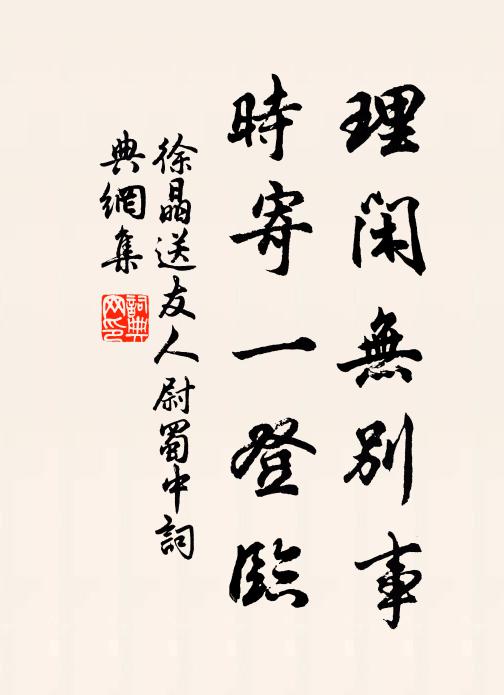 理閑無別事
時寄一登臨
徐晶送友人尉蜀中詞
典網集
詞典网印